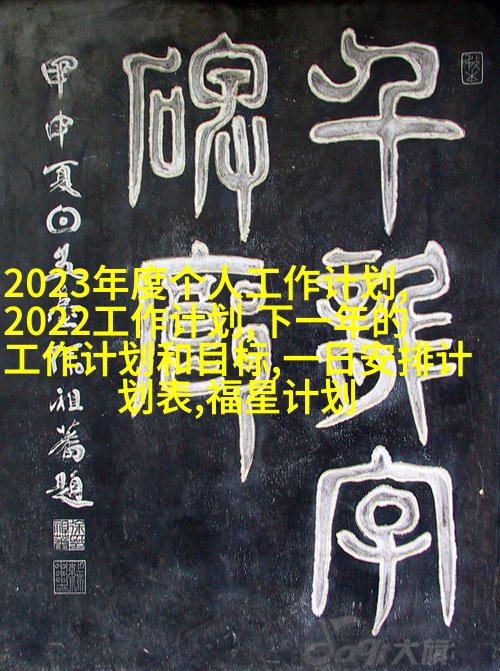 2023年度个人工作计划,
2022工作计划,下一年的
工作计划和目标,一日安排计
划表,福星计划
千字
碑
甲申夏日祖蕃題